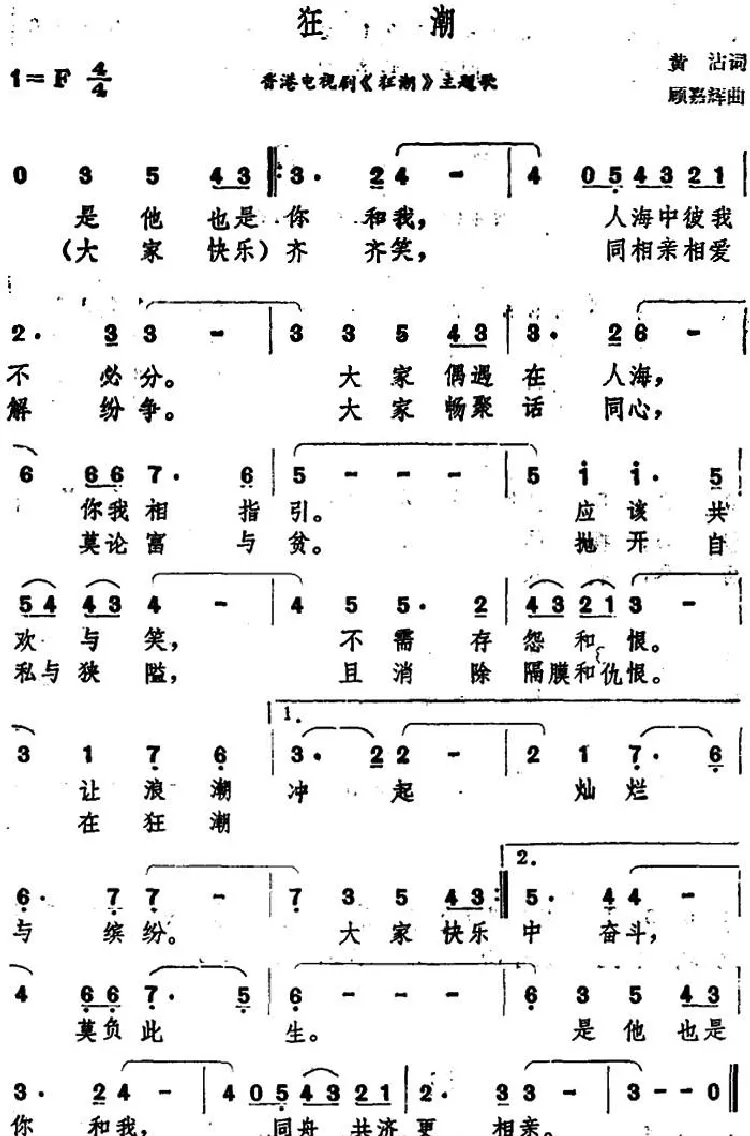 狂潮
1=F 4/4
香港电视剧《狂潮》主题歌
黄沾词
顾嘉辉曲
0 3 5 4 3 ‖: 3· 2 4 - | 4 0 5 4 3 2 1 |
是他也是你和我，人海中彼我
（大家快乐）齐齐笑，同相亲相爱
2· 3 3 - | 3 3 5 4 3 | 3· 2 6 - |
不必分。大家偶遇在人海，
解纷争。大家畅聚话同心，
6 6 6 7· 6 | 5 - - - | 5 i i· 5
你我相指引。应该共
莫论富与贫。抛开自
5 4 4 3 4 - | 4 5 5· 2 | 4 3 2 1 3 - |
欢与笑，不需存怨和恨。
私与狭隘，且消除隔膜和仇恨。
1. 3 1 7 6 | 3· 2 2 - | 2 1 7· 6
让浪潮冲起灿烂
在狂潮
2. 6· 7 7 - | 7 3 5 4 3 :‖ 5· 4 4 - |
与缤纷。大家快乐中奋斗，
4 6 6 7· 5 | 6 - - - | 6 3 5 4 3
莫负此生。是他也是
3· 2 4 - | 4 0 5 4 3 2 1 | 2· 3 3 | 3 - - 0 ‖
你和我，同舟共济更相亲。